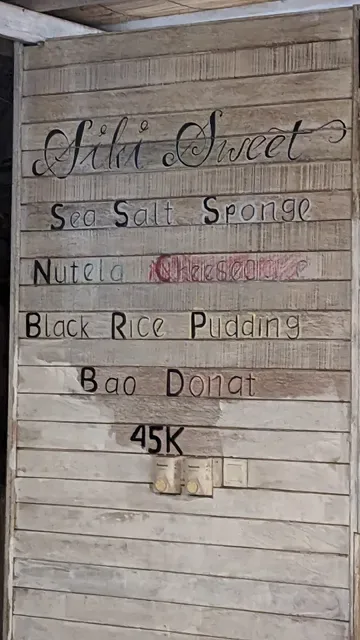 Siki Sweet
Sea Salt Sponge
Nutela Cheesecake
Black Rice Pudding
Bao Donat
45K